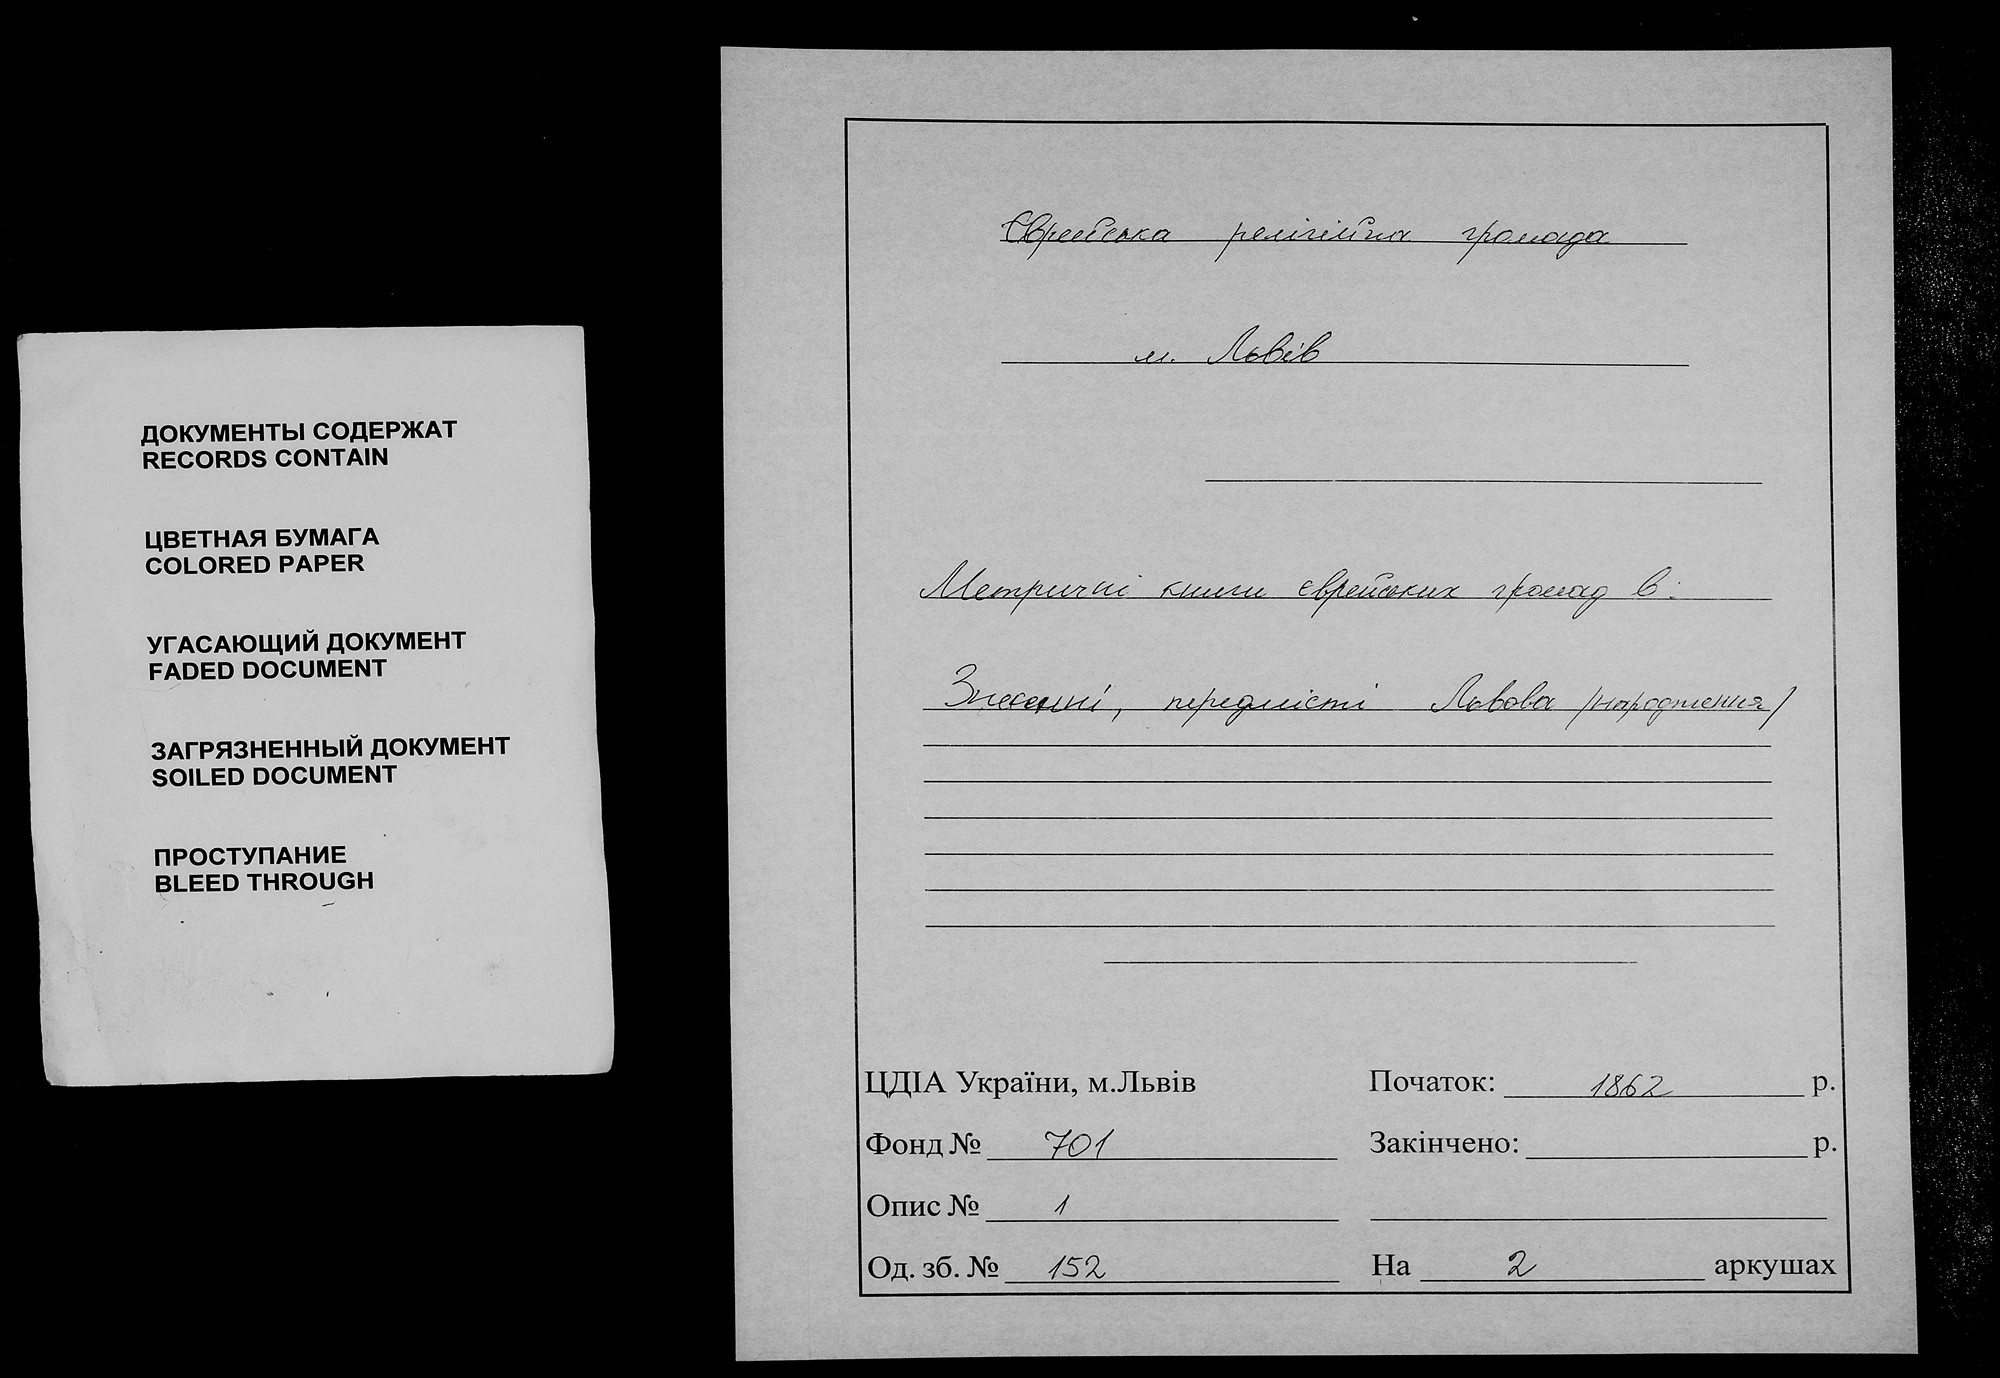 ДОКУМЕНТЫ СОДЕРЖАТ
RECORDS CONTAIN
ЦВЕТНАЯ БУМАГА
COLORED PAPER
УГАСАЮЩИЙ ДОКУМЕНТ
FADED DOCUMENT
ЗАГРЯЗНЕННЫЙ ДОКУМЕНТ
SOILED DOCUMENT
ПРОСТУПАНИЕ
BLEED THROUGH
Єврейська релігійна громада
м. Львів
Метричні книги єврейських громад в:
Знесенні, передмісті Львова /народження/
ЦДІА України, м.Львів
Початок: 1862 р.
Фонд № 701
Закінчено: р.
Опис № 1
Од. зб. № 152
На 2 аркушах